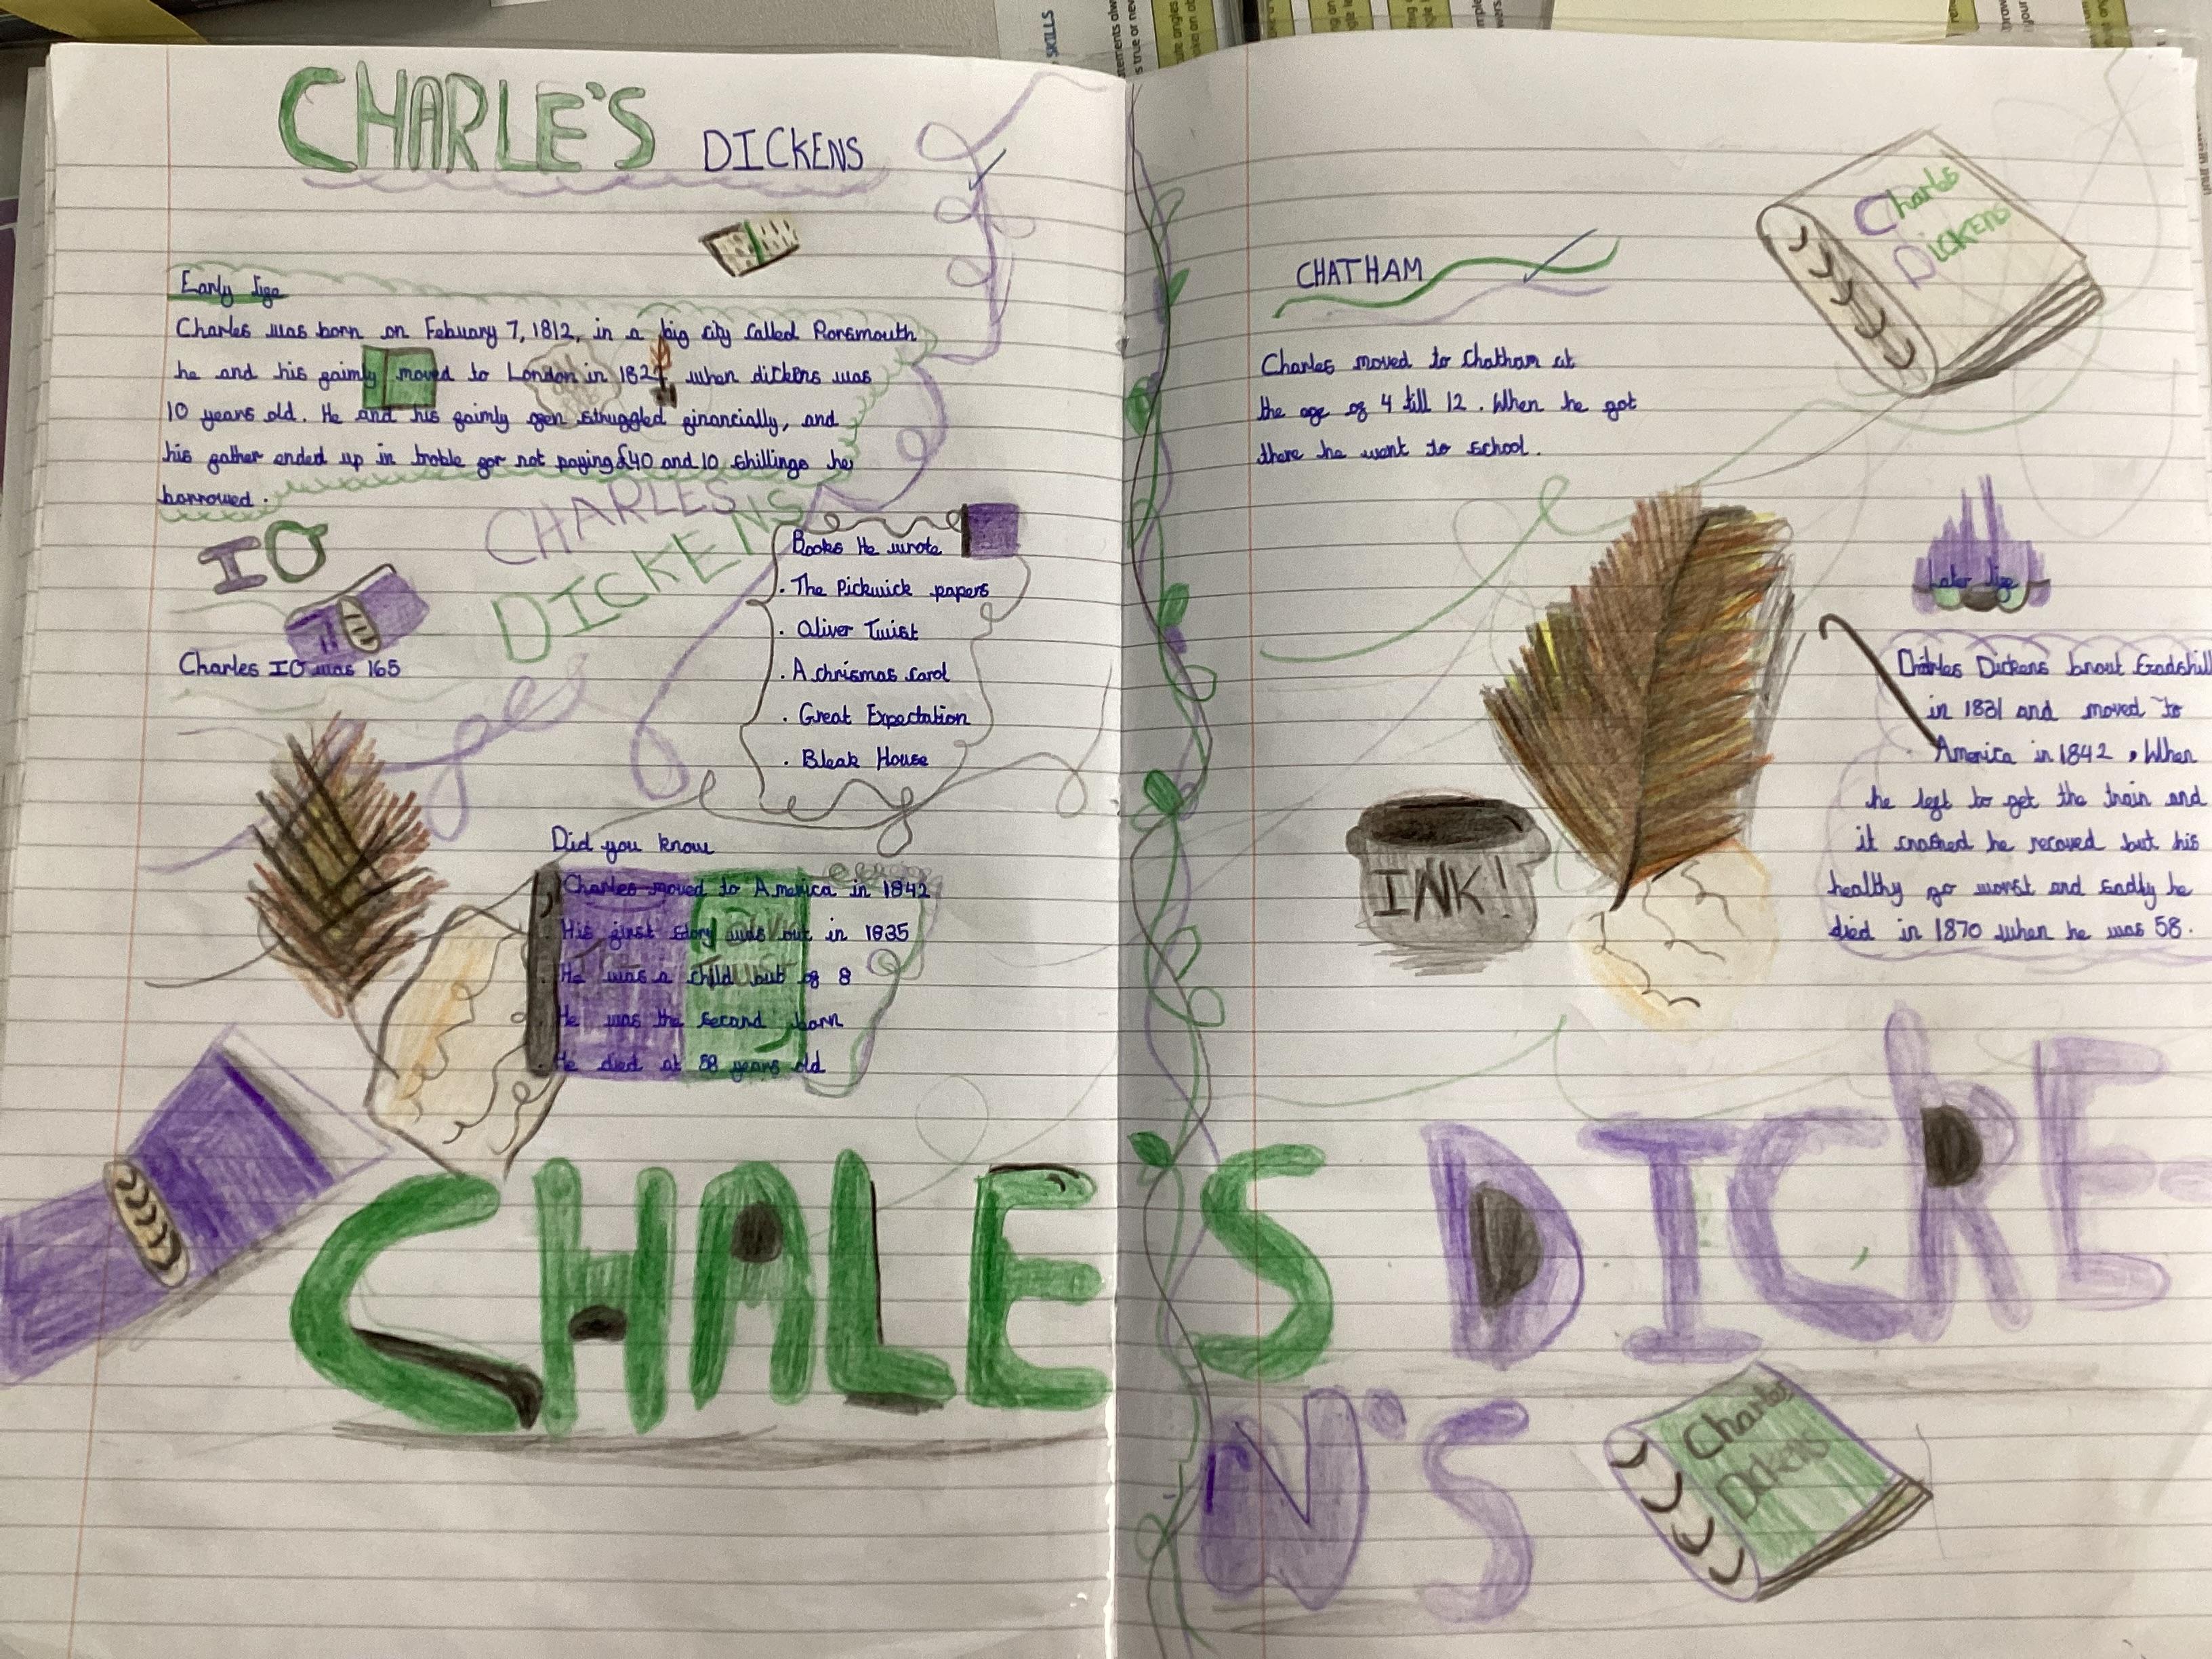 CHARLE'S DICKENS
Early life
Charles was born on Febuary 7, 1812, in a big city called Porsmouth
he and his faimly moved to London in 1822 when dickens was
10 years old. He and his faimly struggled financially, and
his father ended up in troble for not paying £40 and 10 shillings he
borrowed.
CHARLES
DICKENS
IQ
Charles IQ was 165
Books He wrote
· The Pickwick papers
· Oliver Twist
· A chrismas carol
· Great Expectation
· Bleak House
Did you know
Charles moved to America in 1842
His first story was out in 1835
He was a child out of 8
He was the second born
He died at 58 years old
CHALES DICKE-
N'S
CHATHAM
Charles moved to Chatham at
the age of 4 till 12. When he got
there he went to school.
Charles
DICKENS
Later life
Charles Dickens brout Gadshill
in 1831 and moved to
America in 1842. When
he left to get the train and
it crashed he recoved but his
healthy go worst and sadly he
died in 1870 when he was 58.
INK!
Charles
Dickens
SKILLS